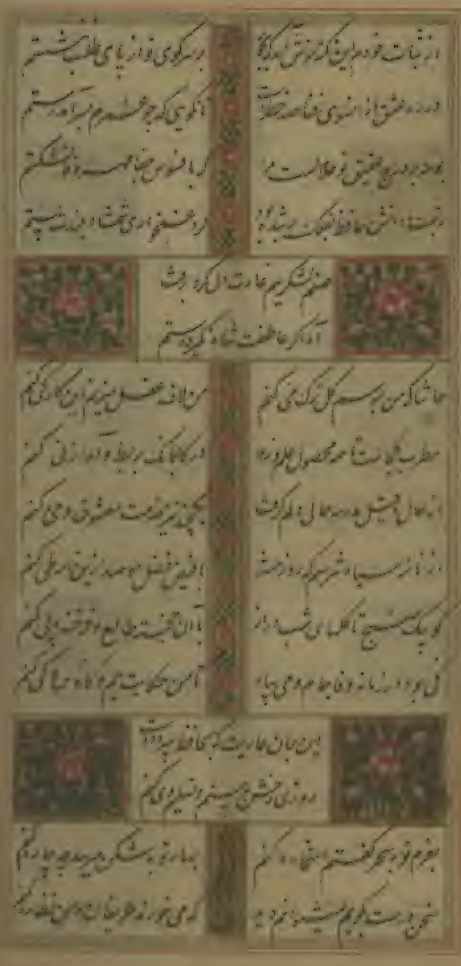 از ثبات خودم این نکته خوش آمد که بجور
بر سر کوی تو از پای طلب ننشستم
در ره عشق از آنسوی فنا صد خطرست
تا نگویی که چو عمرم بسر آمد رستم
بوسه بر درج عقیق تو حلالست مرا
که بافسوس جفا مهر وفا نشکستم
رتبت دانش حافظ بفلک بر شده بود
کرد غمخواری شمشاد بلندت پستم
صنم لشکریم غارت دل کرد برفت
آه اگر عاطفت شاه نگیرد دستم
حاشا که من بموسم گل ترک می کنم
من لاف عقل میزنم این کار کی کنم
مطرب کجاست تا همه محصول علم و زهد
در کار بانگ بربط و آواز نی کنم
از قال و قیل مدرسه حالی دلم گرفت
یکچند نیز خدمت معشوق و می کنم
از نامه سیاه نترسم که روز حشر
با فیض فضل او صد ازین نامه طی کنم
کو پیک صبح تا گلهای شب دراز
با آن خجسته طالع و فرخنده پی کنم
کی بود در زمانه وفا جام می بیار
تا من حکایت جم و کاوس کی کنم
این جان عاریت که بحافظ سپرد دوست
روزی رخش ببینم و تسلیم وی کنم
بعزم توبه سحر گفتم استخاره کنم
بهار توبه شکن میرسد چه چاره کنم
سخن درست بگویم نمیتوانم دید
که می خورند حریفان و من نظاره کنم